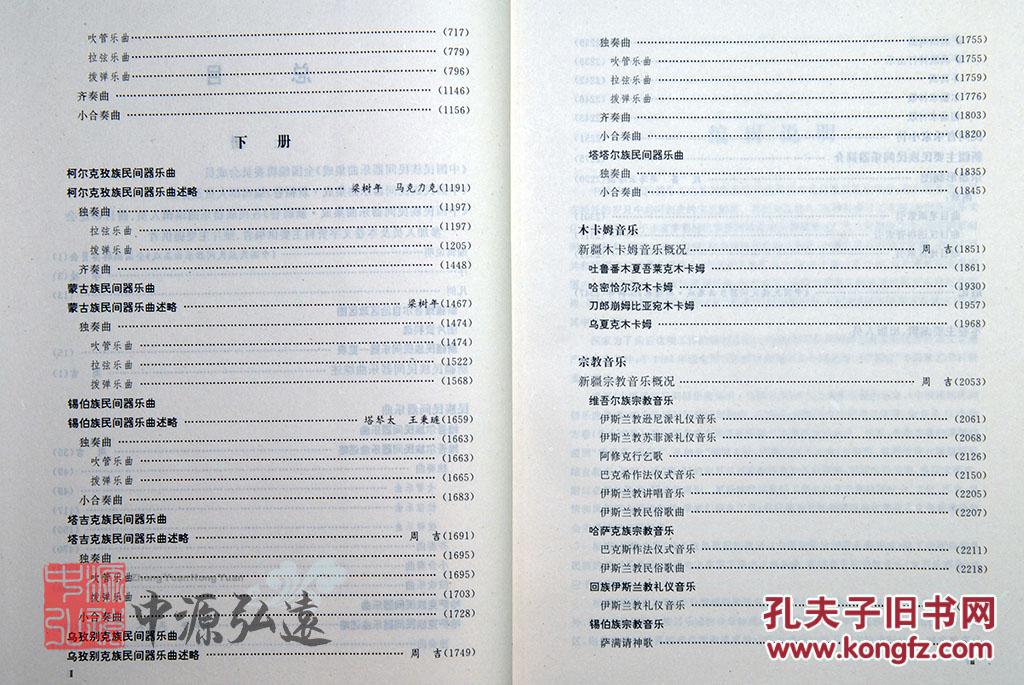 吹管乐曲 (717)
拉弦乐曲 (779)
拨弹乐曲 (796)
齐奏曲 (1146)
小合奏曲 (1156)
下 册
柯尔克孜族民间器乐曲
柯尔克孜族民间器乐曲述略 梁树年 马克力克(1191)
独奏曲 (1197)
拉弦乐曲 (1197)
拨弹乐曲 (1205)
齐奏曲 (1448)
蒙古族民间器乐曲
蒙古族民间器乐曲述略 梁树年(1467)
独奏曲 (1474)
吹管乐曲 (1474)
拉弦乐曲 (1522)
拨弹乐曲 (1568)
锡伯族民间器乐曲
锡伯族民间器乐曲述略 塔琴太 王秉琏(1659)
独奏曲 (1663)
吹管乐曲 (1663)
拨弹乐曲 (1665)
小合奏曲 (1683)
塔吉克族民间器乐曲
塔吉克族民间器乐曲述略 周 吉(1691)
独奏曲 (1695)
吹管乐曲 (1695)
拨弹乐曲 (1703)
小合奏曲 (1728)
乌孜别克族民间器乐曲
乌孜别克族民间器乐曲述略 周 吉(1749)
I
独奏曲 (1755)
吹管乐曲 (1755)
拉弦乐曲 (1759)
拨弹乐曲 (1776)
齐奏曲 (1803)
小合奏曲 (1820)
塔塔尔族民间器乐曲
独奏曲 (1835)
小合奏曲 (1845)
木卡姆音乐
新疆木卡姆音乐概况 周 吉(1851)
吐鲁番木夏吾莱克木卡姆 (1861)
哈密恰尔尕木卡姆 (1930)
刀郎崩姆比亚宛木卡姆 (1957)
乌夏克木卡姆 (1968)
宗教音乐
新疆宗教音乐概况 周 吉(2053)
维吾尔族宗教音乐
伊斯兰教逊尼派礼仪音乐 (2061)
伊斯兰教苏菲派礼仪音乐 (2068)
阿修克行乞歌 (2126)
巴克希作法仪式音乐 (2150)
伊斯兰教讲唱音乐 (2205)
伊斯兰教民俗歌曲 (2207)
哈萨克族宗教音乐
巴克斯作法仪式音乐 (2211)
伊斯兰教民俗歌曲 (2218)
回族伊斯兰教礼仪音乐
伊斯兰教礼仪音乐
锡伯族宗教音乐
萨满请神歌
II
中源弘远
ZhongYuanHongYuan
中源弘遠
孔夫子旧书网
www.kongfz.com